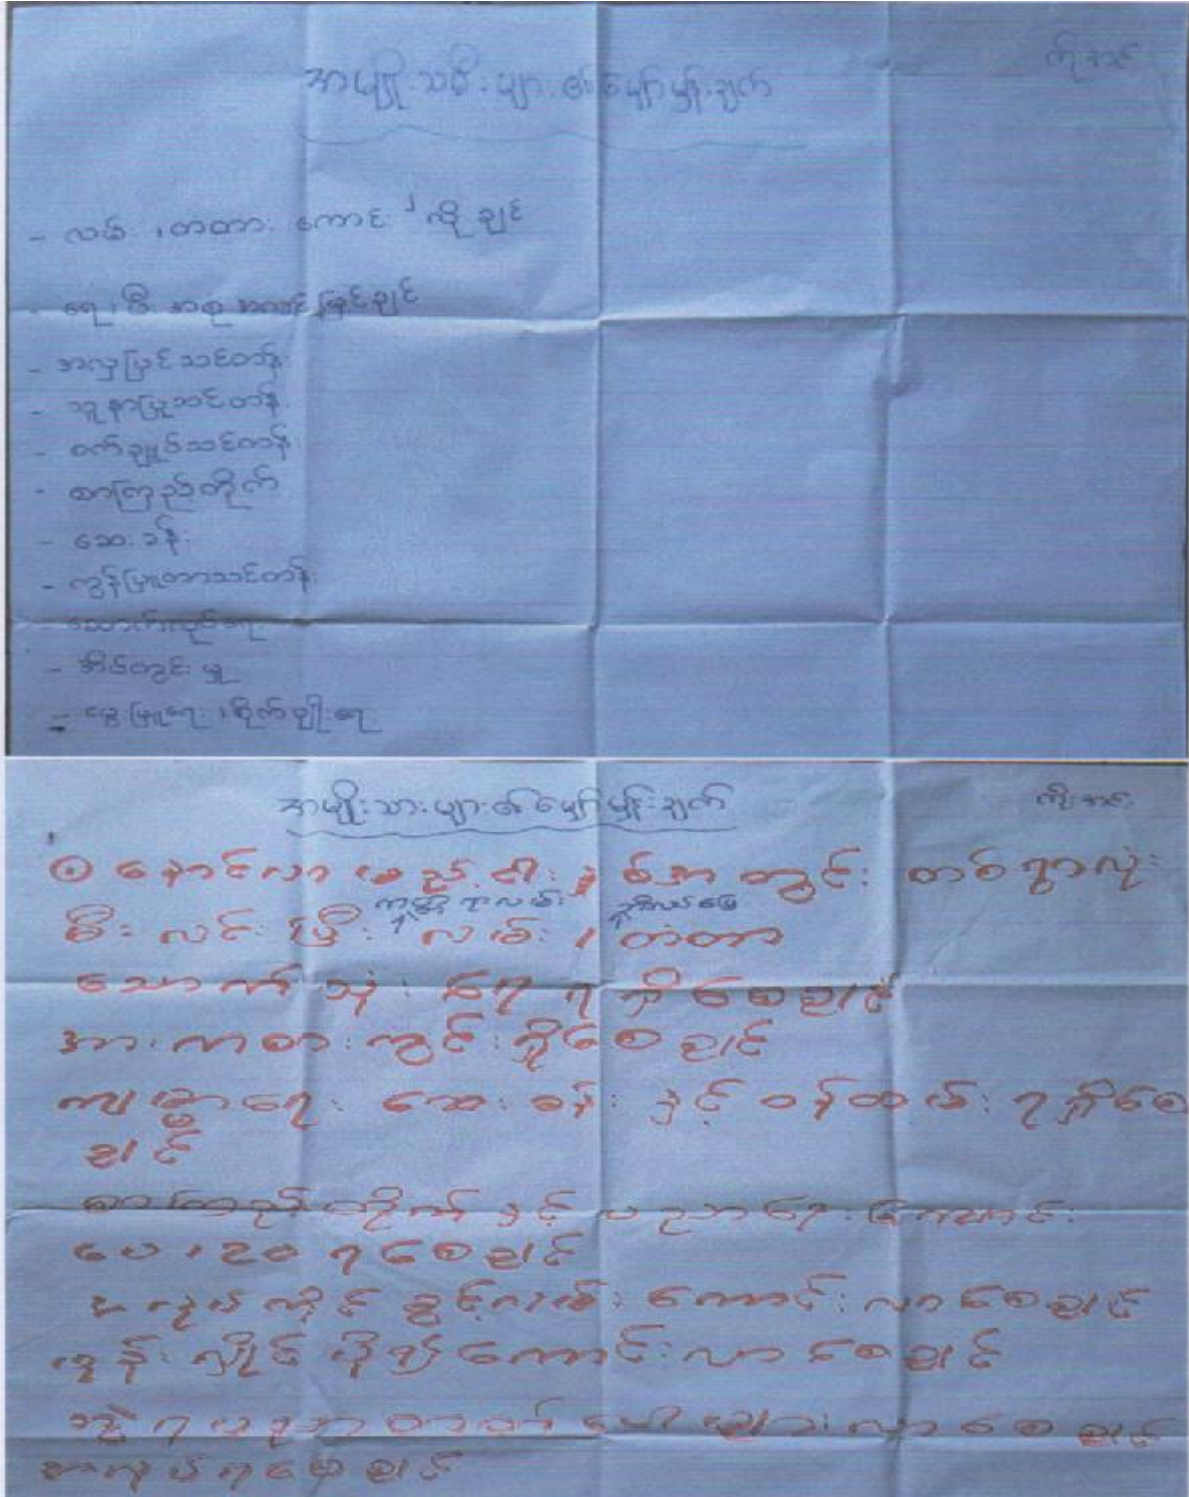 အမျိုးသမီးများ၏မျှော်မှန်းချက်
- လမ်း၊ တံတား ကောင်း လိုချင်
- ရေ၊ မီး အစုအလင်မြင်ချင်
- အလှပြင်သင်တန်း
- သူနာပြုသင်တန်း
- စက်ချုပ်သင်တန်း
- စာကြည့်တိုက်
- ဆေးခန်း
- ကွန်ပြူတာသင်တန်း
ဆောက်လုပ်ရေး
- အိမ်တွင်းမှု
- မွေးမြူရေး၊ စိုက်ပျိုးရေး
အမျိုးသားများ၏မျှော်မှန်းချက်
၁ နောင်လာမည့် ငါးနှစ်အတွင်း တစ်ရွာလုံး
မီးလင်းပြီး လမ်း၊ တံတား
သောက်သုံးရေရရှိစေချင်
အားကစားကွင်းရှိစေချင်
ကျန်းမာရေး ဆေးခန်းနှင့် ဝန်ထမ်းရရှိစေ
ချင်
စာကြည့်တိုက်နှင့် ပညာရေးကျောင်း
ပေ ၊ 120 ရစေချင်
ကောင်းလာစေချင်
ပိုမိုကောင်းလာစေချင်
ပညာတတ်ပေါများလာစေချင်
အလုပ်ရစေချင်